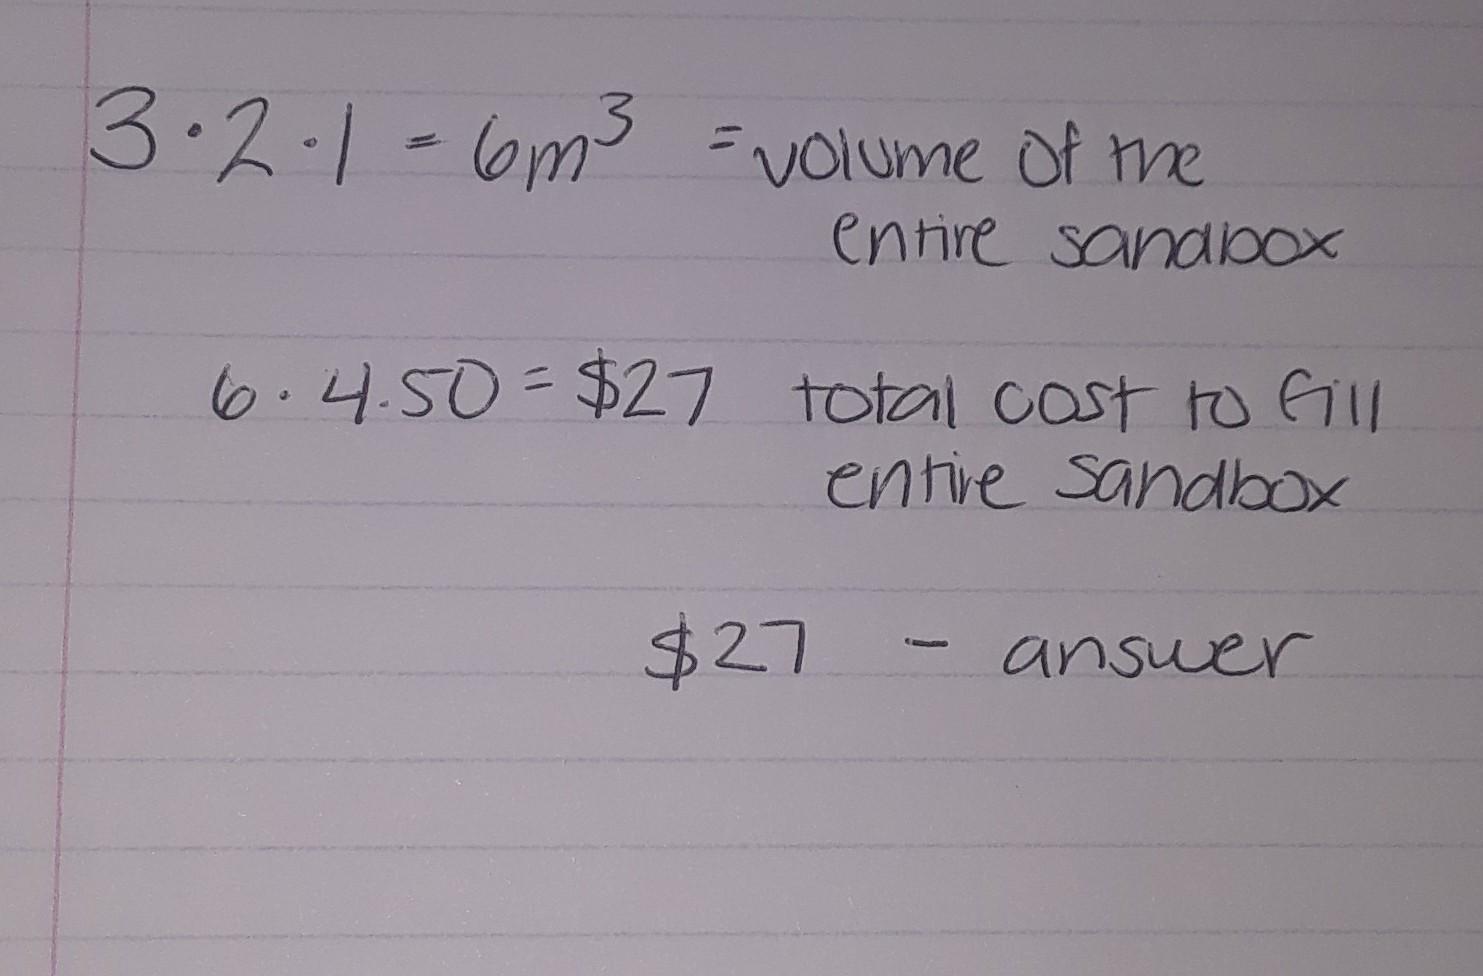 3·2·1 = 6m³ = volume of the
entire sandbox
6·4.50 = $27 total cost to fill
entire sandbox
$27 - answer